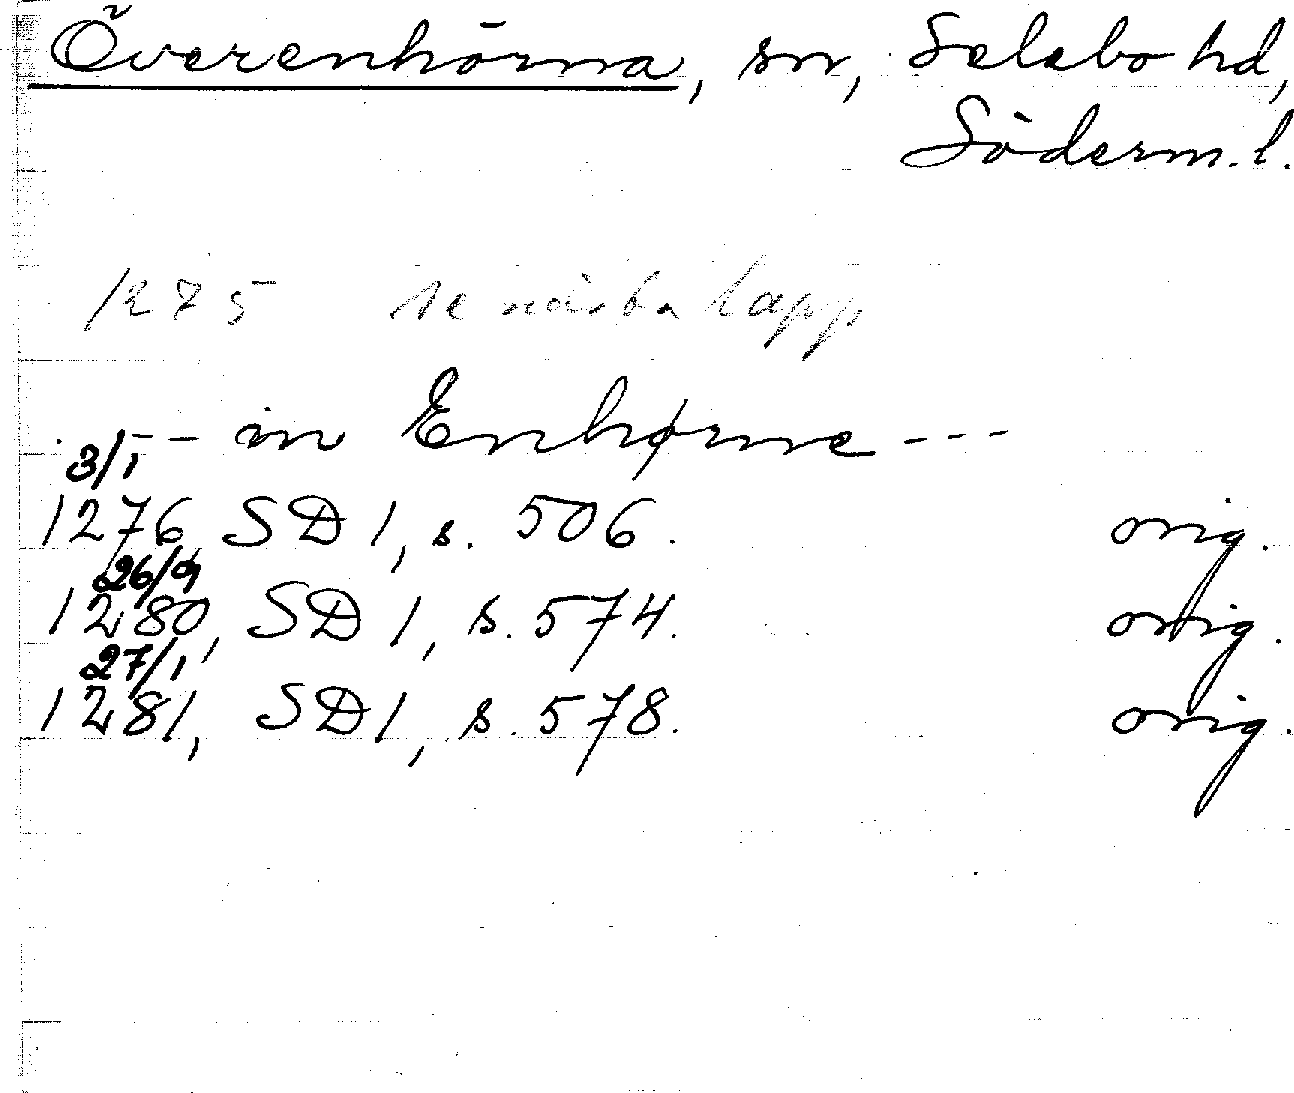 Överenhörna, sn, Selebo hd,
Söderm. l.
1275 se nästa lapp
- - - in Enhørne - - -
3/1
1276, SD 1, s. 506. orig.
26/9
1280, SD 1, s. 574. orig.
27/1
1281, SD 1, s. 578. orig.